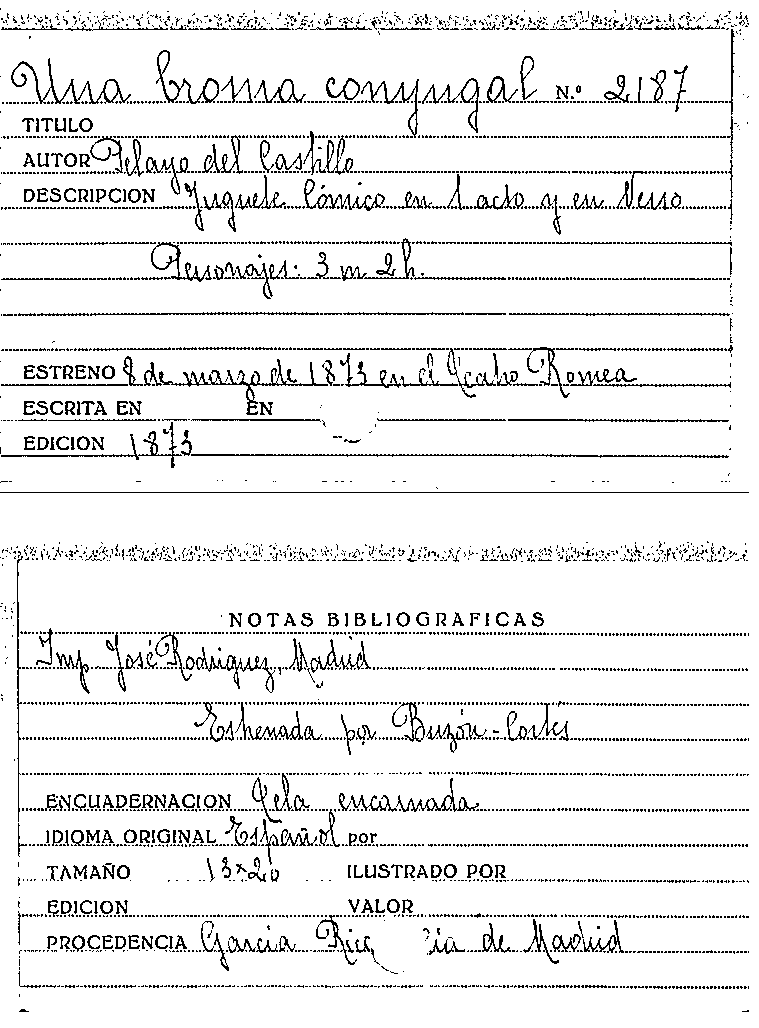 Una broma conyugal N.º 2187
TITULO
AUTOR Pelayo del Castillo
DESCRIPCION Juguete Cómico en 1 acto y en Verso
Personajes: 3 m 2 h.
ESTRENO 8 de marzo de 1873 en el Teatro Romea
ESCRITA EN EN
EDICION 1873
NOTAS BIBLIOGRAFICAS
Imp José Rodriguez, Madrid
Estrenada por Buzón-Cortés
ENCUADERNACION Tela encarnada
IDIOMA ORIGINAL Español por
TAMAÑO 13x20 ILUSTRADO POR
EDICION VALOR
PROCEDENCIA Garcia Rico de Madrid